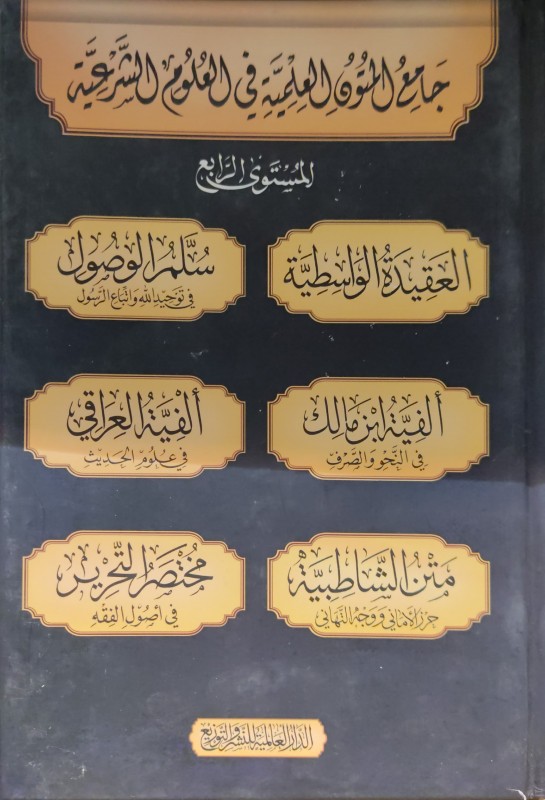 جَامِعُ المُتُونِ العِلْمِيَّةِ فِي العُلُومِ الشَّرْعِيَّةِ
المُسْتَوَى الرَّابِع
العَقِيدَةُ الوَاسِطِيَّة
سُلَّمُ الوُصُول
فِي تَوْحِيدِ اللهِ وَاتِّبَاعِ الرَّسُول
ألفِيَّةُ ابْنِ مَالِك
فِي النَّحْوِ وَالصَّرْفِ
ألْفِيَّةُ العِرَاقِي
فِي عُلُومِ الحَدِيث
مَتْنُ الشَّاطِبِيَّة
حِرْزُ الأَمَانِي وَوَجْهُ التَّهَانِي
مُخْتَصَرُ التَّحْرِير
فِي أُصُولِ الفِقْهِ
الدَّارُ العَالَمِيَّةُ لِلنَّشْرِ وَالتَّوْزِيع